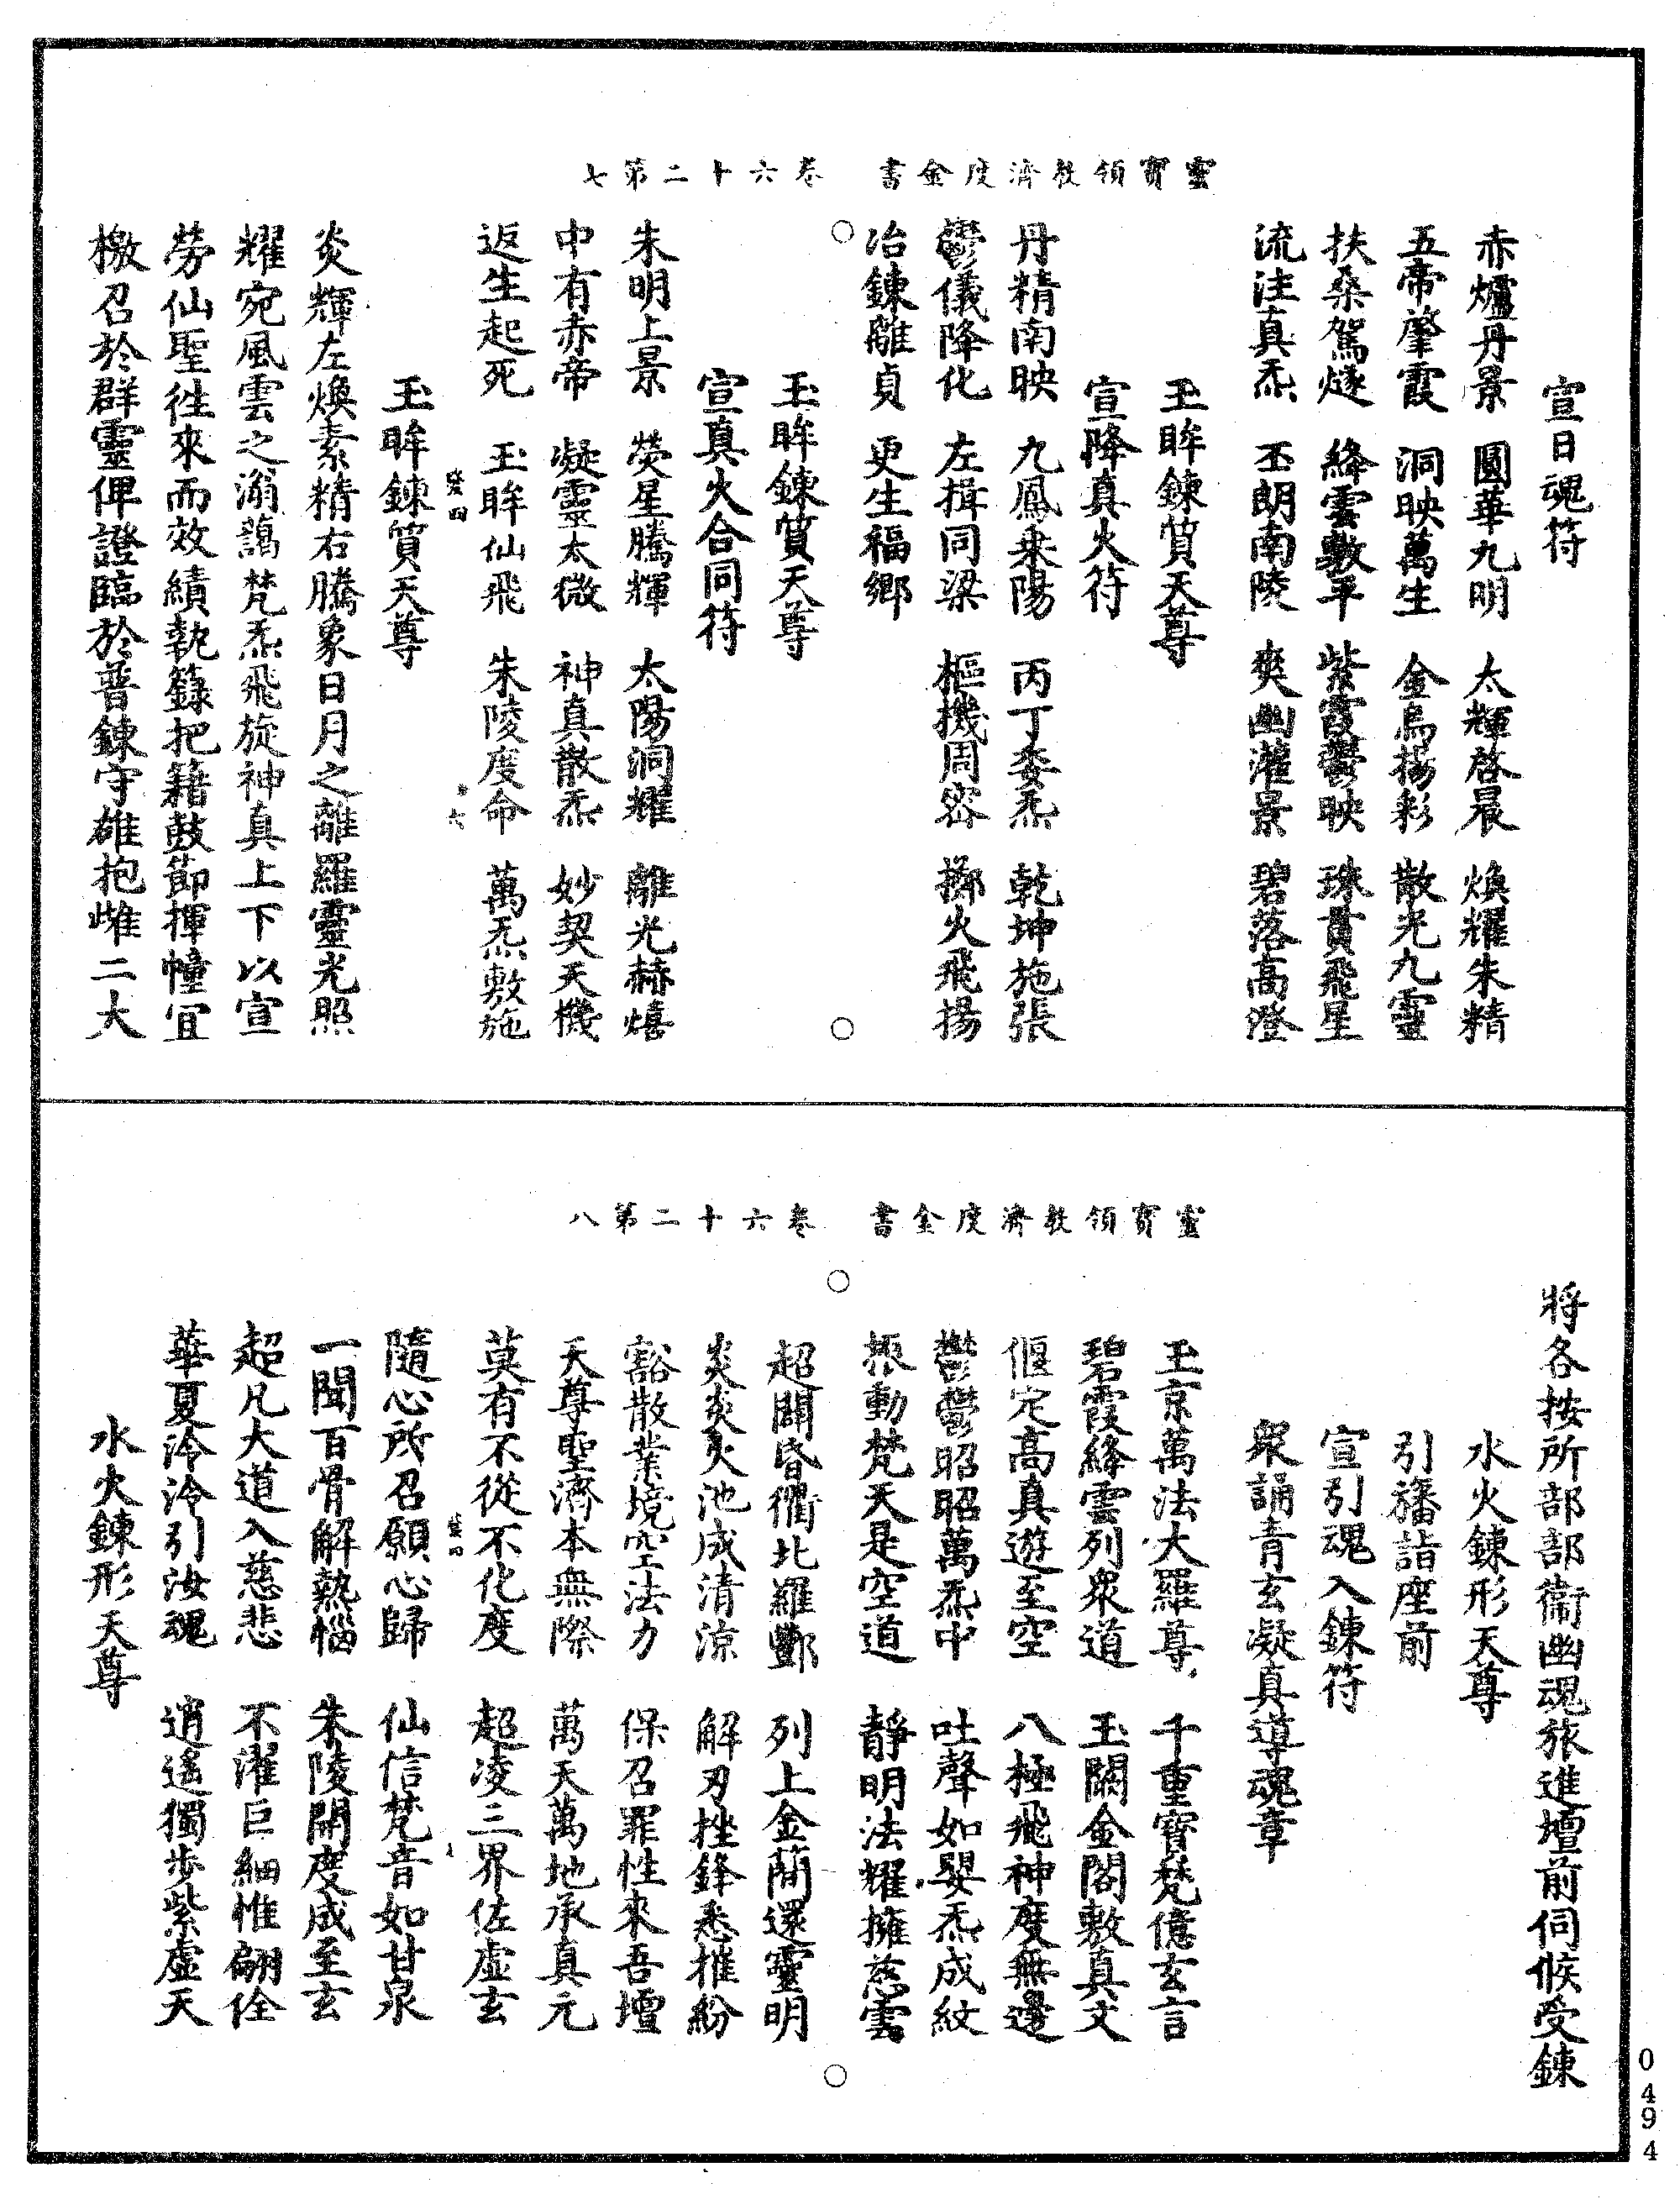 靈寶領教濟度金書 卷六十二第七
宣日魂符
赤爐丹景 圓華九明 太輝啓晨 煥耀朱精
五帝肇霞 洞映萬生 金烏揚彩 散光九靈
扶桑駕燧 絳雲敷平 紫霞鬱映 珠貫飛星
流注真炁 丕朗南陵 爽幽灌景 碧落高澄
玉眸鍊質天尊
宣降真火符
丹精南映 九鳳乘陽 丙丁委炁 乾坤施張
鬱儀降化 左揖同梁 樞機周密 擲火飛揚
冶鍊離貞 更生福鄉
玉眸鍊質天尊
宣真火合同符
朱明上景 熒星騰輝 太陽洞耀 離光赫熺
中有赤帝 凝靈太微 神真散炁 妙契天機
返生起死 玉眸仙飛 朱陵度命 萬炁敷施
玉眸鍊質天尊
炎輝左煥素精右騰象日月之離羅靈光照
耀宛風雲之滃藹梵炁飛旋神真上下以宣
勞仙聖徃來而效績執籙把籍鼓節揮幢宜
檄召於群靈俾證臨於普鍊守雄抱雌二大
靈寶領教濟度金書 卷六十二第八
將各按所部部衞幽魂旅進壇前伺候受鍊
水火鍊形天尊
引旛詣座前
宣引魂入鍊符
衆誦青玄凝真導魂章
玉京萬法大羅尊 千重寶梵億玄言
碧霞絳雲列衆道 玉闕金閣敷真文
偃定高真遊至空 八極飛神度無邊
鬱鬱昭昭萬炁中 吐聲如嬰炁成紋
振動梵天是空道 靜明法耀擁慈雲
超闢昏衢北羅酆 列上金簡還靈明
炎炎火池成清涼 解刃挫鋒悉摧紛
豁散業境空法力 保召罪性來吾壇
天尊聖濟本無際 萬天萬地承真元
莫有不從不化度 超凌三界佐虛玄
隨心所召願心歸 仙信梵音如甘泉
一聞百骨解熱惱 朱陵開度成至玄
超凡大道入慈悲 不濯巨細惟翩佺
華夏泠泠引汝魂 逍遙獨步紫虛天
水火鍊形天尊
0494